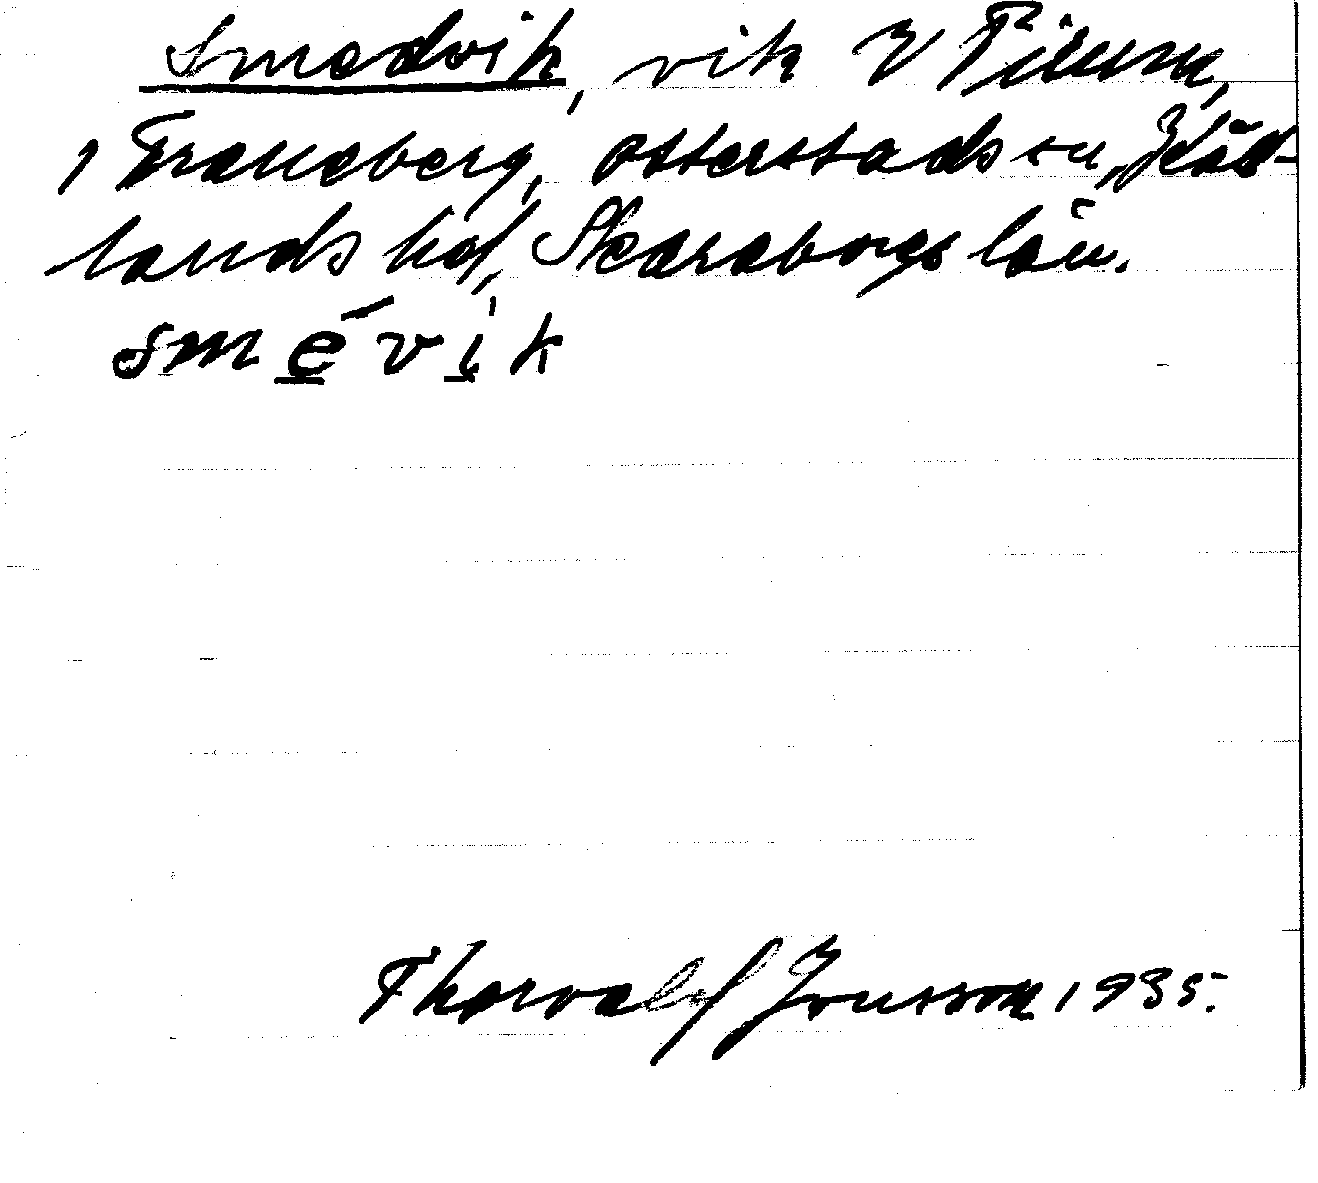 Smedvik, vik V Tiurn,
i Traneberg, Otterstads sn, Kål-
lands hd, Skaraborgs län.
smévik
Thorvald Jonsson 1935.